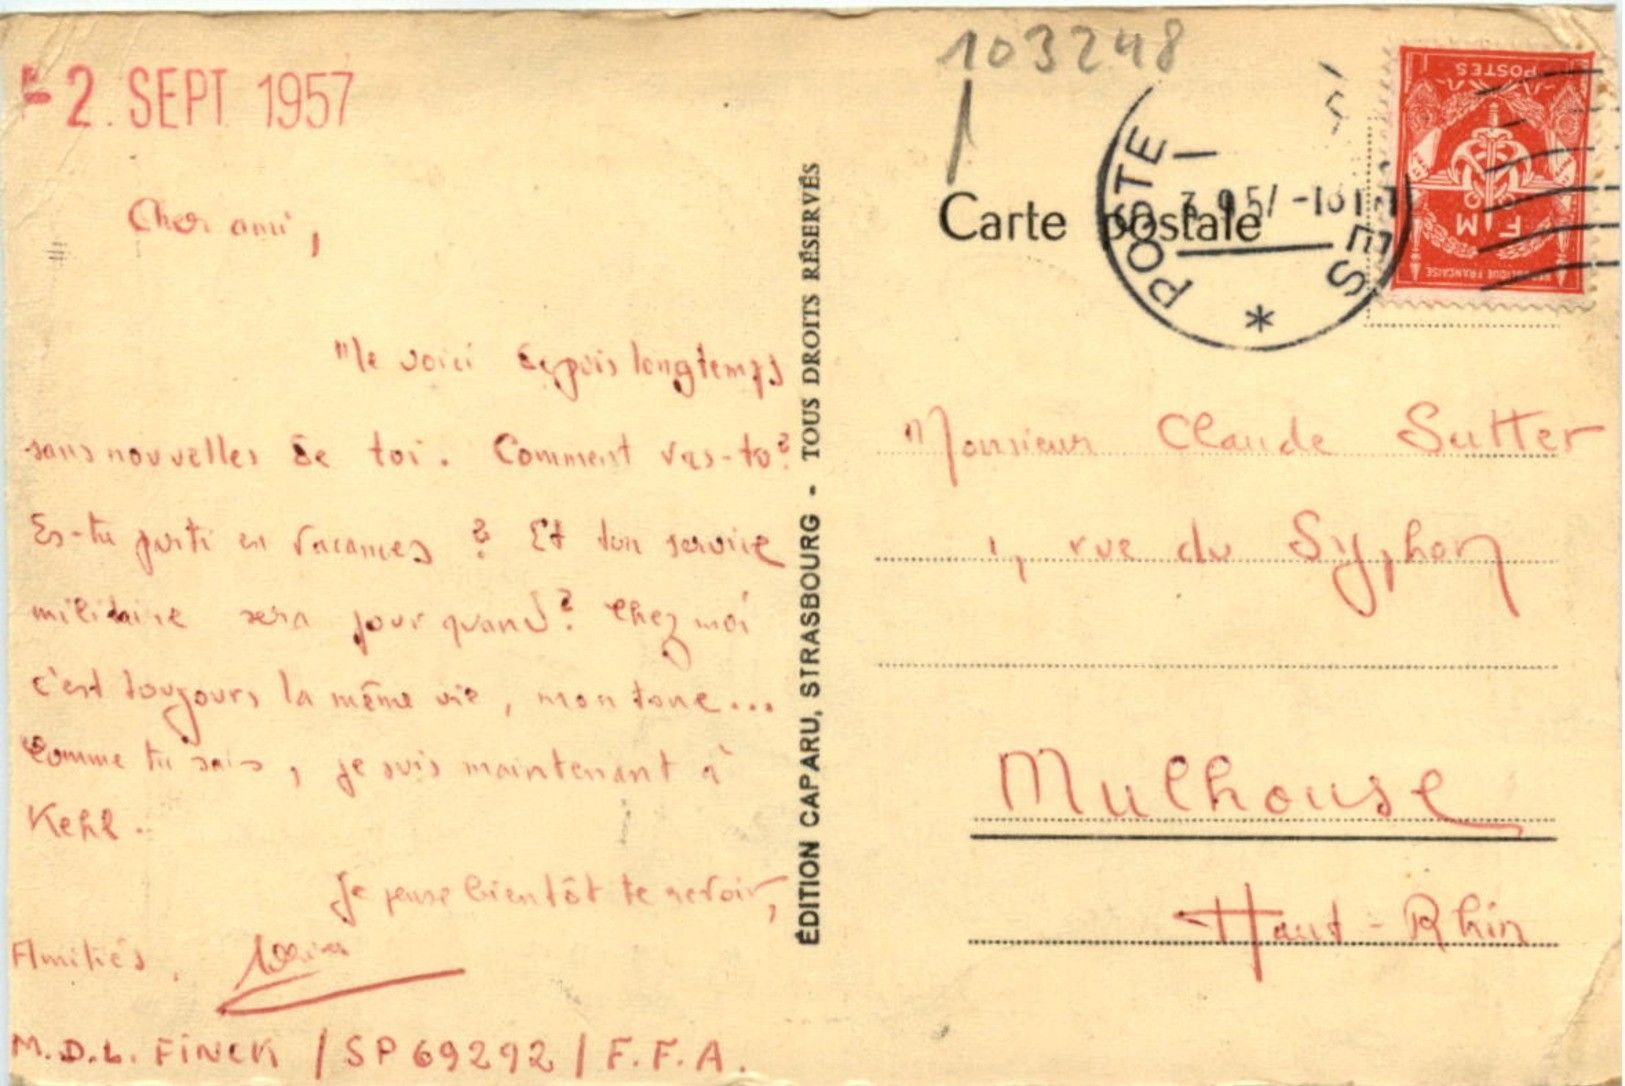 - 2. SEPT 1957
Cher ami,
Me voici depuis longtemps
sans nouvelles de toi. Comment vas-tu?
Es-tu parti en vacances ? Et ton service
militaire sera pour quand? Chez moi
c'est toujours la même vie, monotone...
Comme tu sais, je suis maintenant à
Kehl.
Je pense bientôt te revoir,
Amitiés,
M.D.L. FINCK / SP 69292 / F.F.A.
ÉDITION CAPARU, STRASBOURG - TOUS DROITS RÉSERVÉS
103248
Carte postale
POSTE
*
POSTES
F M
RÉPUBLIQUE FRANÇAISE
Monsieur Claude Sutter
1, rue du Syphon
Mulhouse
Haut-Rhin